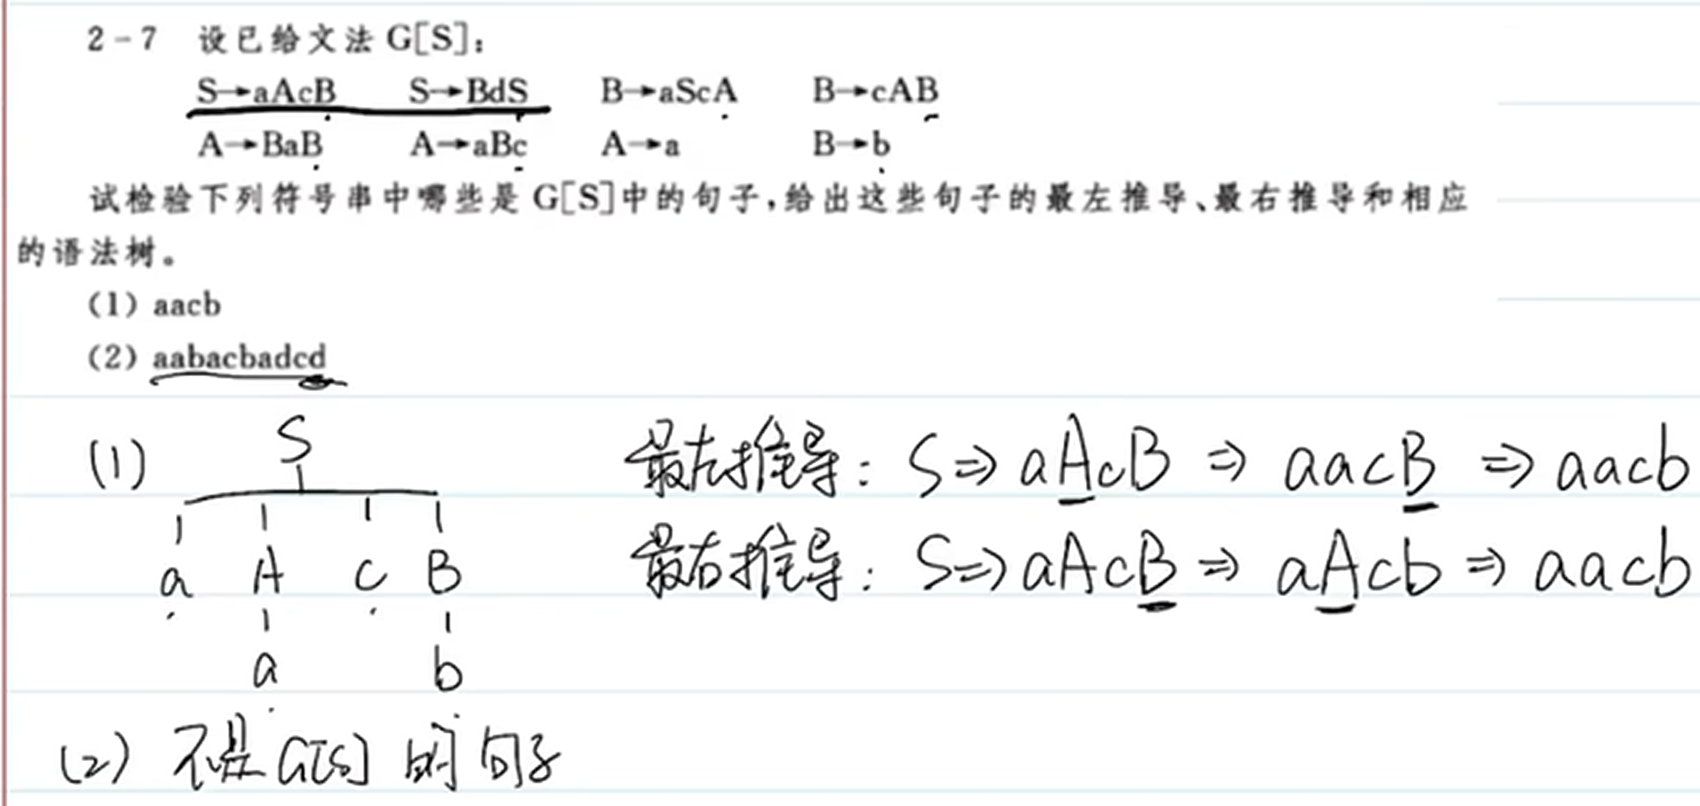 2-7 设已给文法 G[S]:
S→aAcB S→BdS B→aScA B→cAB
A→BaB A→aBc A→a B→b
试检验下列符号串中哪些是 G[S]中的句子,给出这些句子的最左推导、最右推导和相应
的语法树。
(1) aacb
(2) aabacbadcd
(1) S
a A c B
a b
最左推导: S⇒aAcB⇒aacB⇒aacb
最右推导: S⇒aAcB⇒aAcb⇒aacb
(2) 不是G[S]的句子